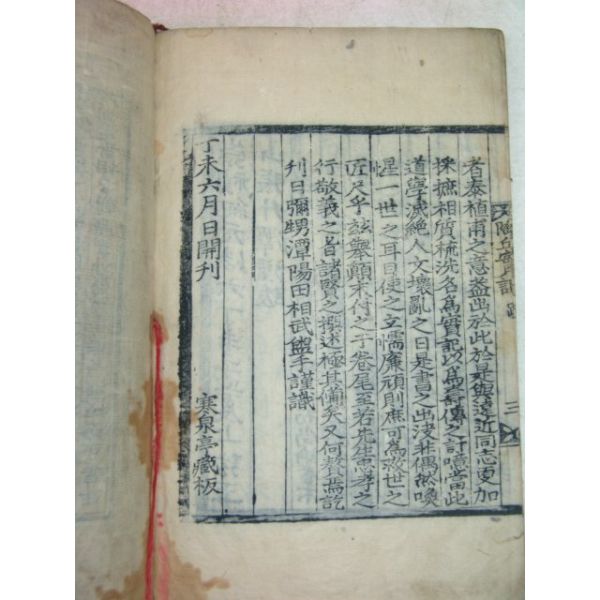 者泰植甫之意盖出於此於是與遠近同志更加
採摭相質梳洗名爲實記以爲壽傳之計噫當此
道學滅絶人文壞亂之日是書之出決非偶然喚
惺一世之耳目使之立懦廉頑則庶可爲救世之
匠尺乎玆擧顚末付之于卷尾至若先生忠孝之
行敬義之旨諸賢之撰述極其備矣又何贅焉訖
刊日彌甥潭陽田相武盥手謹識
丁未六月日開刊
寒泉亭藏板
陶丘實記 跋
三